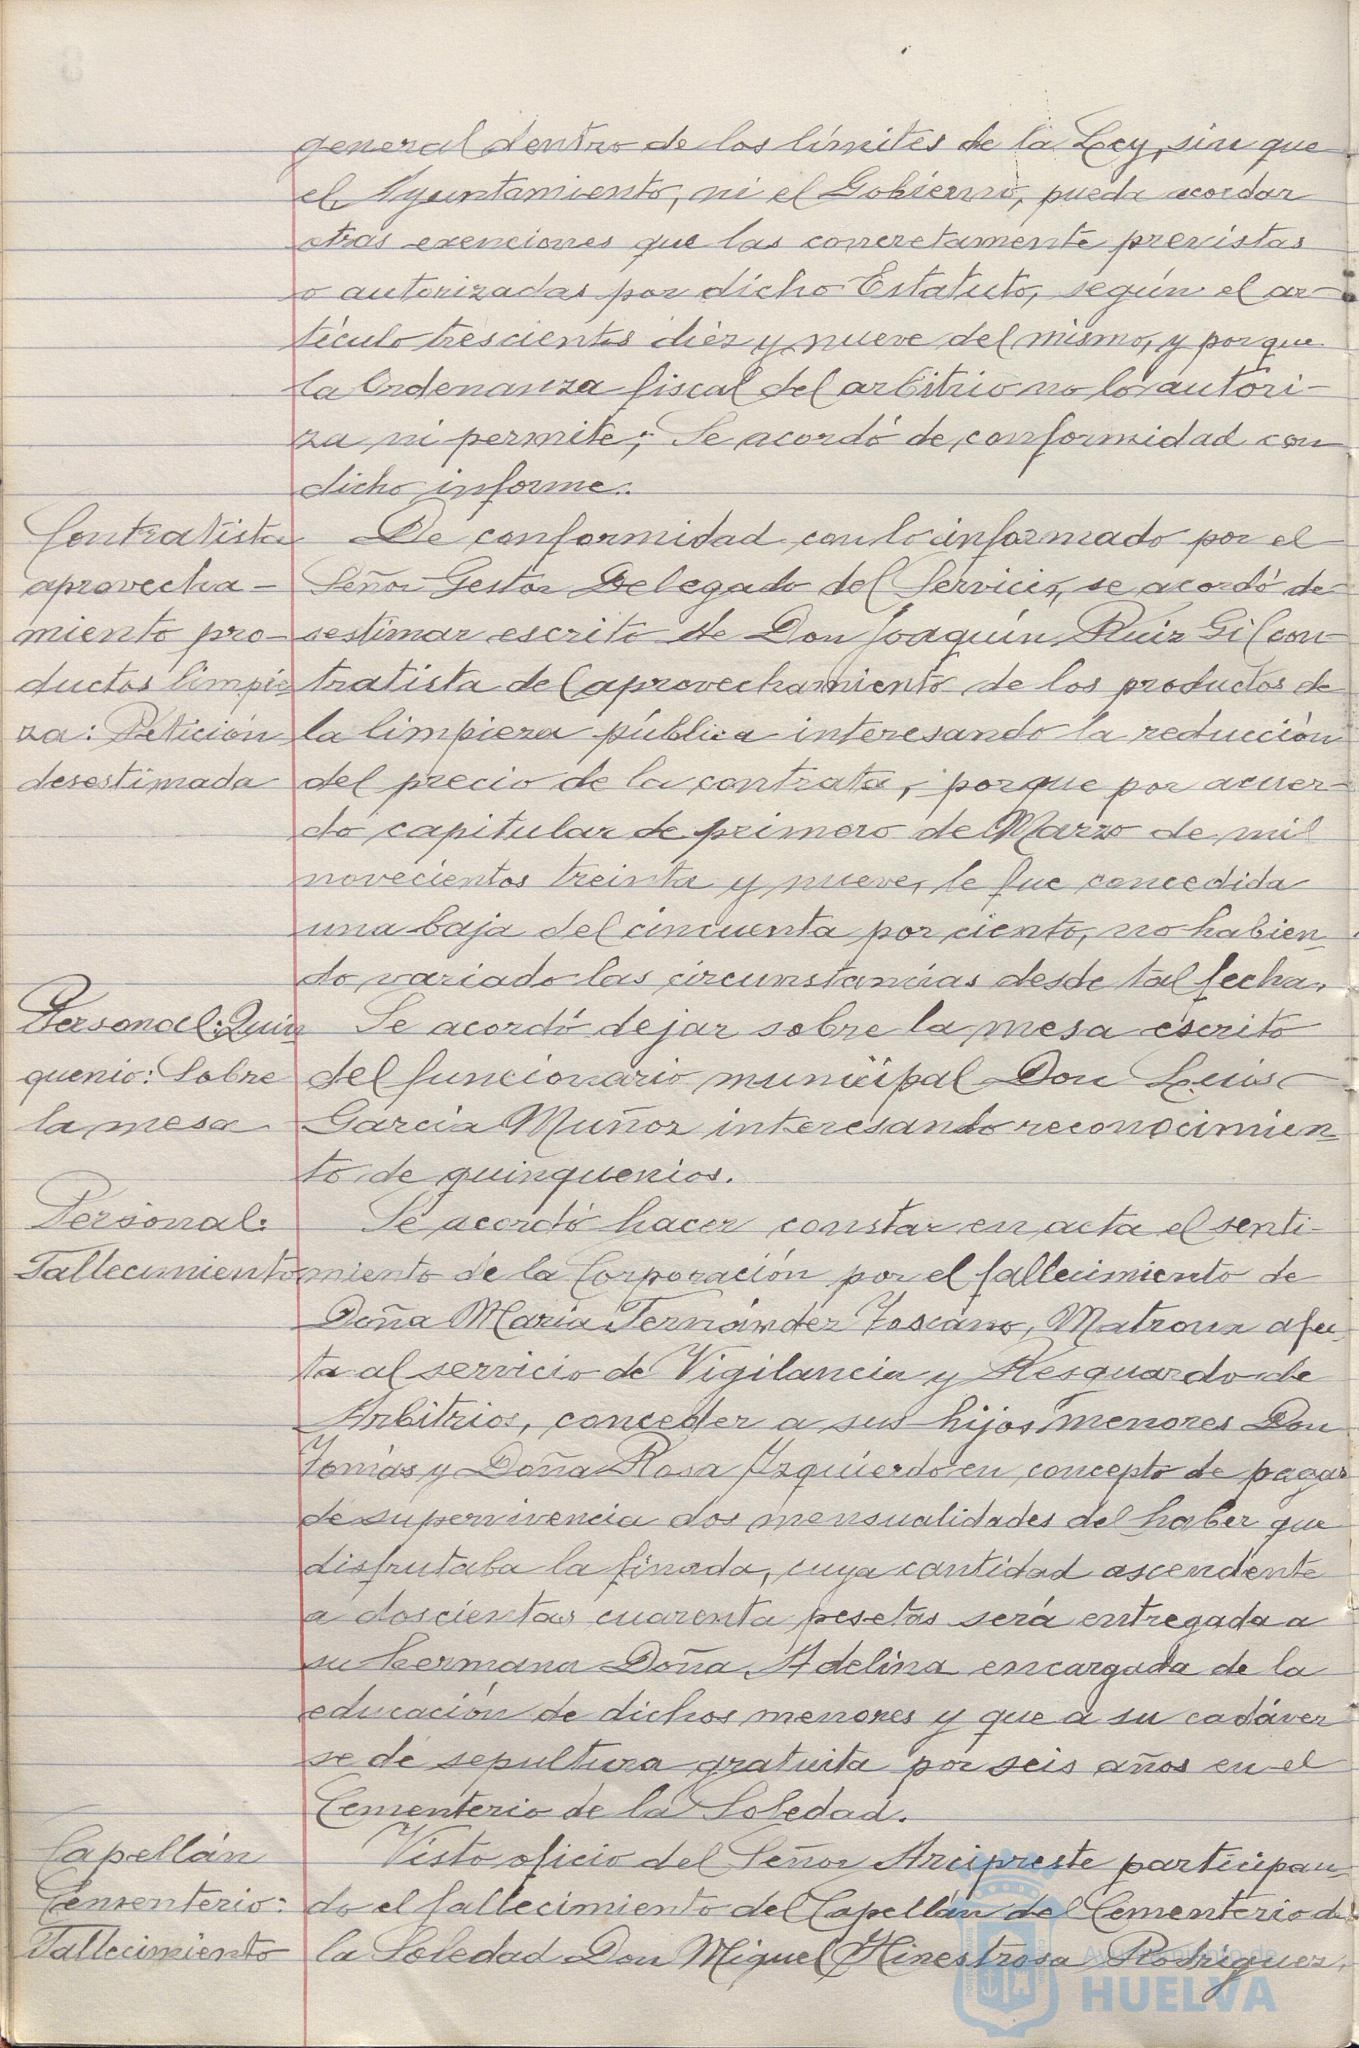 general dentro de los límites de la Ley, sin que
el Ayuntamiento, ni el Gobierno, pueda acordar
otras exenciones que las concretamente previstas
o autorizadas por dicho Estatuto, según el ar-
tículo trescientos diez y nueve del mismo, y porque
la Ordenanza fiscal del arbitrio no lo autori-
za ni permite; Se acordó de conformidad con
dicho informe.
Contratista
aprovecha-
miento pro-
ductos limpie
za: Petición
desestimada
De conformidad con lo informado por el
Señor Gestor Delegado del Servicio, se acordó de-
sestimar escrito de Don Joaquín Ruiz Gil con-
tratista del aprovechamiento de los productos de
la limpieza pública interesando la reducción
del precio de la contrata, porque por acuer-
do capitular de primero de Marzo de mil
novecientos treinta y nueve, le fue concedida
una baja del cincuenta por ciento, no habien-
do variado las circunstancias desde tal fecha.
Personal: Quin
quenio: Sobre
la mesa
Se acordó dejar sobre la mesa escrito
del funcionario municipal Don Luis
Garcia Muñoz interesando reconocimien-
to de quinquenios.
Personal:
Fallecimiento
Se acordó hacer constar en acta el senti-
miento de la Corporación por el fallecimiento de
Doña María Fernández Toscano, Matrona afec-
ta al servicio de Vigilancia y Resguardo de
Arbitrios, conceder a sus hijos menores Don
Tomás y Doña Rosa Izquierdo en concepto de pagas
de supervivencia dos mensualidades del haber que
disfrutaba la finada, cuya cantidad ascendente
a doscientas cuarenta pesetas será entregada a
su hermana Doña Adelina encargada de la
educación de dichos menores y que a su cadáver
se dé sepultura gratuita por seis años en el
Cementerio de la Soledad.
Capellán
Cementerio:
Fallecimiento
Visto oficio del Señor Arcipreste participan-
do el fallecimiento del Capellán del Cementerio de
la Soledad Don Miguel Hinestrosa Rodríguez,
Ayuntamiento de
HUELVA